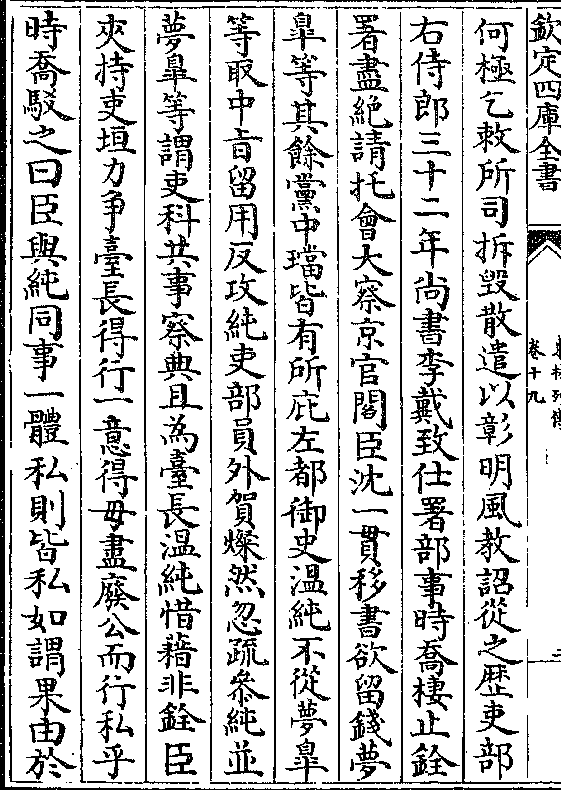 欽定四庫全書
卷十九
何極乞敕所司拆毀散遣以彰明風教詔從之歴吏部
右侍郎三十二年尚書李戴致仕署部事時喬棲止銓
署盡絶請托會大察京官閣臣沈一貫移書欲留錢夢
臯等其餘黨中璫皆有所庇左都御史温純不從夢臯
等取中旨留用反攻純吏部員外賀燦然忽疏叅純並
夢臯等謂吏科共事察典且為臺長温純惜藉非銓臣
夾持吏垣力争臺長得行一意得毋盡廢公而行私乎
時喬駁之曰臣與純同事一體私則皆私如謂果由於